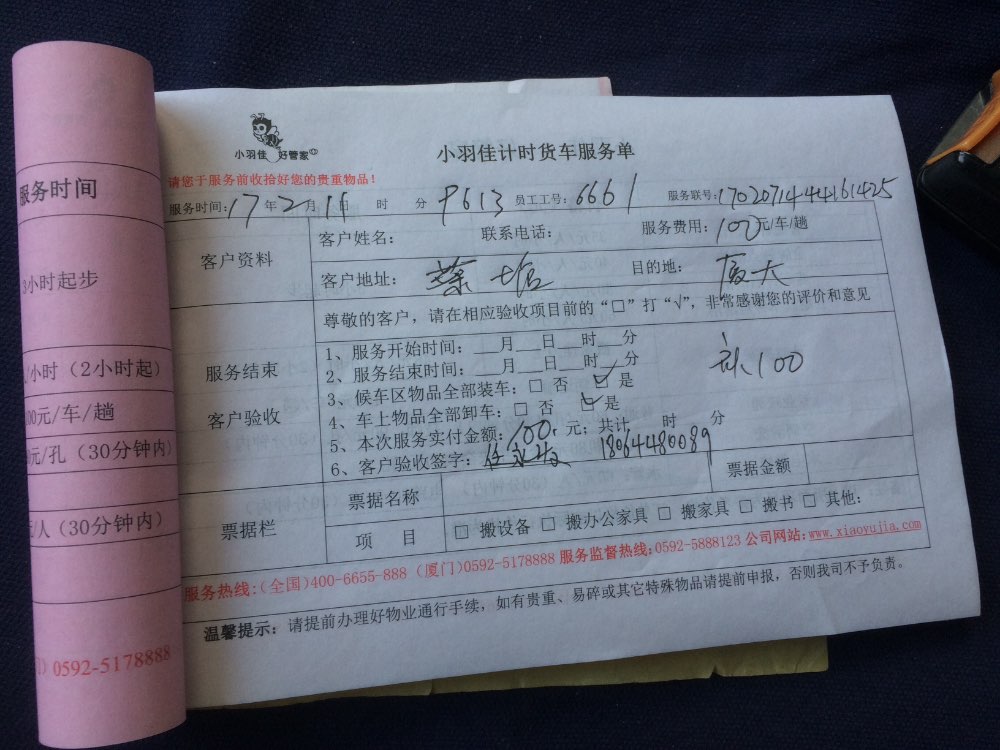 小羽佳 好管家
小羽佳计时货车服务单
请您于服务前收拾好您的贵重物品！
服务时间：17年2月11日 时 分 9613 员工工号：6661 服务联号：17020714444161425
客户资料
客户姓名： 联系电话： 服务费用：100元/车/趟
客户地址：蔡塘 目的地：厦大
尊敬的客户，请在相应验收项目前的“□”打“√”，非常感谢您的评价和意见
服务结束
客户验收
1、服务开始时间：___月___日___时___分
2、服务结束时间：___月___日___时___分
3、候车区物品全部装车：□ 否 ☑ 是
4、车上物品全部卸车：□ 否 ☑ 是
5、本次服务实付金额：100元；共计 时 分
6、客户验收签字： 18064480089
补100
票据栏
票据名称 票据金额
项 目 □ 搬设备 □ 搬办公家具 □ 搬家具 □ 搬书 □ 其他：
服务热线：(全国)400-6655-888 (厦门)0592-5178888 服务监督热线：0592-5888123 公司网站：www.xiaoyujia.com
温馨提示：请提前办理好物业通行手续，如有贵重、易碎或其它特殊物品请提前申报，否则我司不予负责。
服务时间
小时起步
/小时（2小时起）
00元/车/趟
元/孔（30分钟内）
/人（30分钟内）
0592-5178888